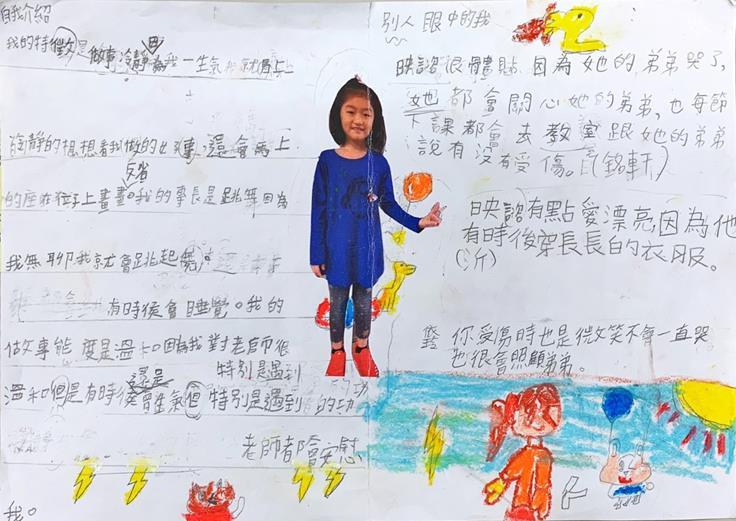 自我介紹
我的特徵是做事冷靜因為我一生氣我就馬上
冷靜的想想看我做的出事,還會馬上
交省
的座在椅子上畫畫。我的專長是跳舞因為
我無聊我就會跳起舞,
有時侯會睡覺。我的
做事態度是溫和。因為我對老師很
溫和但是有時侯還是會生氣但特別是遇到
特別是遇到的功
老師都會安慰
我。
別人眼中的我
映諮很體貼因為她的弟弟哭了,
她都會關心她的弟弟,也每節
下課都會去教室跟她的弟弟
說有沒有受傷。(銘軒)
映諮有點愛漂亮,因為他
有時後穿長長的衣服。
(沂)
你受傷時也是微笑不會一直哭
也很會照顧弟弟。